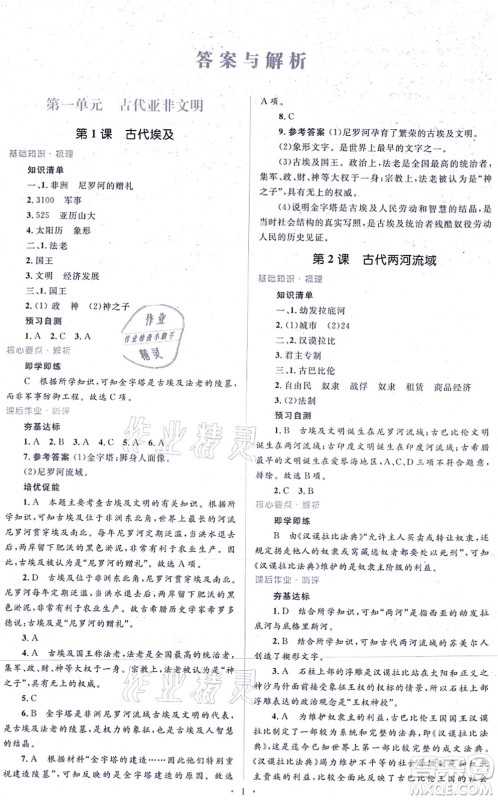 答案与解析
第一单元 古代亚非文明
第1课 古代埃及
基础知识·梳理
知识清单
一、1.非洲 尼罗河的赠礼
2.3100 军事
3.525 亚历山大
4.太阳历 象形
二、1.法老
2.国王
3.文明 经济发展
三、1.国王
2.(1)政 神 (2)神之子
预习自测
1.A 2.C 3.A
核心要点·辨析
即学即练
C 根据所学知识,可知金字塔是古埃及法老的陵墓,
而非军事防御工程。故选C。
课后作业·测评
夯基达标
1.A 2.B 3.C 4.A 5.D 6.C
7.参考答案(1)金字塔;狮身人面像。
(2)尼罗河流域。
培优促能
1.A 本题主要考查古埃及文明的相关内容。根据所
学知识,可知古埃及位于非洲东北角,世界上最长的河流
尼罗河贯穿南北。尼罗河每年定期泛滥,当洪水退去后,
两岸留下肥沃的黑土,农业由此很快发展起来,因此古埃
及文明又被称为“尼罗河的赠礼”。故选A。
2.D 根据所学知识,可知古埃及位于非洲东北角,尼
罗河贯穿南北。尼罗河每年定期泛滥,当洪水退去后,两
岸留下肥沃的黑土。故古希腊历史学家希罗多德说:“埃
及是尼罗河的赠礼。”故选D。
3.A
4.A 古埃及国王称法老,法老是古埃及的最高统治者,
集军、政、财、神等大权于一身。宗教上,法老被称为“神
之子”,具有极大的权威。故选A。
5.C
6.B 金字塔是非洲尼罗河流域古埃及法老的陵墓,是
权力的象征,也反映了社会等级的差别,是古埃及人智慧
的结晶,是古埃及文明的象征。B项说法不正确,符合题
意。故选B。
7.A 根据材料“金字塔的建造……工人们自带工
A项。
8.C
9.参考答案(1)尼罗河孕育了繁荣的古埃及文明。
(2)象形文字。它是世界上最早的文字之一。
(3)古埃及国王。政治上,法老是古埃及最高的统治者,
集军、政、财、神等大权于一身。宗教上,法老被称为“神
之子”,具有极大的权威。
(4)说明金字塔是古埃及人民劳动和智慧的结晶,是
当时社会结构的真实写照,是古埃及统治者残酷奴役劳动
人民的历史见证。
第2课 古代两河流域
基础知识·梳理
知识清单
一、1.幼发拉底河
2.(1)城市 (2)24
3.汉谟拉比
4.君主专制
二、1.古巴比伦
2.自由民 奴隶 战俘 奴隶 租赁 商品经济
3.(1)法制
预习自测
1.A 2.B
3.D 古埃及文明在尼罗河流域;古巴比伦文明诞生
在两河流域;古印度文明诞生在印度河流域;古中国文明
诞生在长江、黄河流域。由此可知它们的共同特征是都位
于大河流域。故选D。
核心要点·辨析
即学即练
B 由《汉谟拉比法典》允许主人买卖或转让奴隶,并
规定拐带、帮助奴隶逃跑或窝藏逃奴者都将被处死可知,
这部法典维护的是奴隶主阶级的利益。
课后作业·测评
夯基达标
1.D 结合所学知识,可知“两河”是指西亚的幼发拉
底河与底格里斯河。
2.D 结合所学知识,可知古代两河流域的苏美尔人
创造了楔形文字。
3.B
4.A 石柱上部的浮雕是汉谟拉比站在太阳和正义之
神沙马什面前,沙马什将象征王权的权标授予汉谟拉比。
所以,石柱上部的浮雕主要体现了“王权神授”。
5.A 为维护奴隶主的利益,古巴比伦国王汉谟拉比